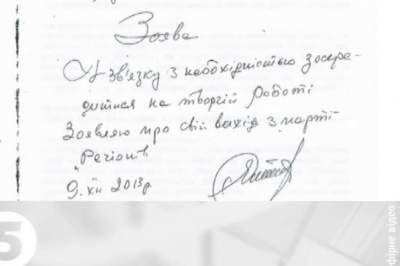 Заява
У зв'язку з необхідністю зосере-
дитися на творчій роботі
Заявляю про свій вихід з парті
"Регіонів
9. XII 2013р
5